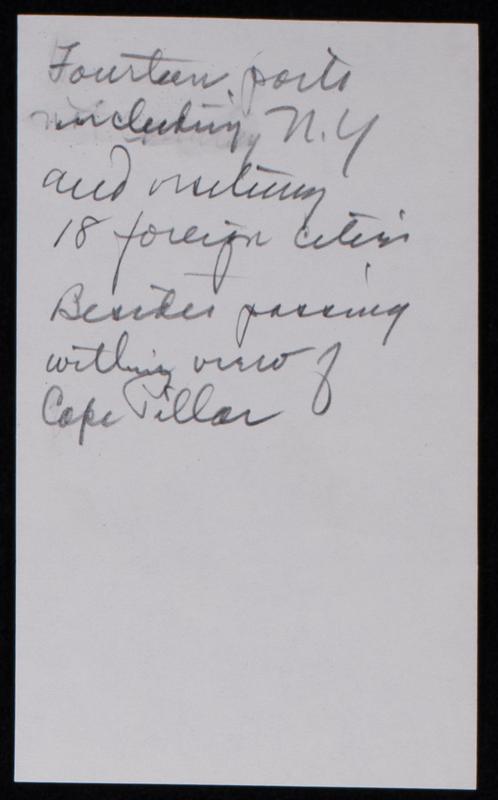 Fourteen ports
including N.Y
and visiting
18 foreign cities
Besides passing
within view of
Cape Pillar